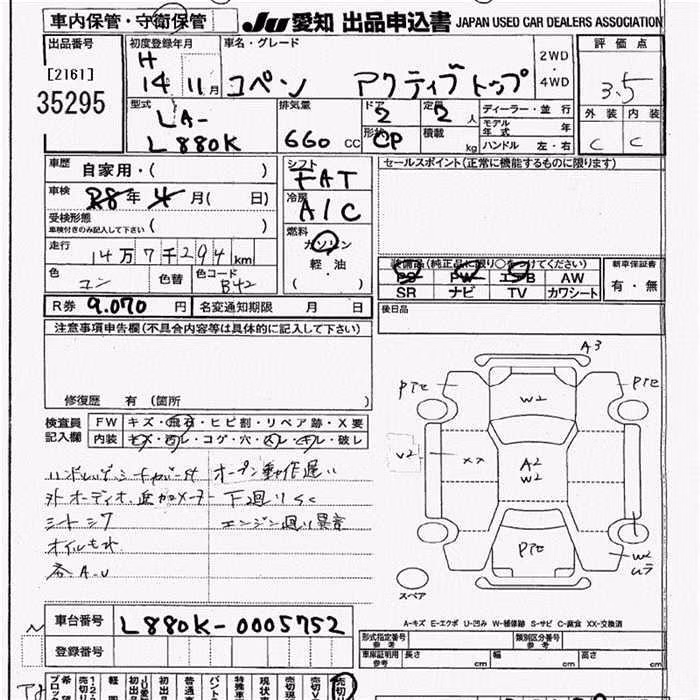 車内保管・守衛保管
Ju 愛知 出品申込書 JAPAN USED CAR DEALERS ASSOCIATION
出品番号
[2161]
35295
初度登録年月
H
14 11月
車名・グレード
コペン アクティブトップ
2WD
・
4WD
評価点
3.5
外装 内装
C C
型式
LA-
L880K
排気量
660 CC
ドア
2
形状
CP
定員
2 人
積載
kg
ディーラー・並行
モデル年式 年
ハンドル 左・右
車歴
自家用・( )
車検
R8年4月( 日)
受検形態
車検付きのみ記入して下さい ( )
走行
14万7千294km
色
コン
色替
色コード
B42
シフト
FAT
冷房
A/C
燃料
ガソリン
軽・油
( )
セールスポイント(正常に機能するものに限ります)
装備品(純正品に限り○をつけてください)
PS PW エアB AW
SR ナビ TV カワシート
新車保証書
有・無
R券 9.070 円
名変通知期限 月 日
後日品
注意事項申告欄(不具合内容等は具体的に記入して下さい)
修復歴 有 (箇所 )
検査員
記入欄
FW キズ・飛石・ヒビ割・リペア跡・X要
内装 キズ・汚レ・コゲ・穴・スレ・キレ・破レ
オープン動作遅い
下廻りSC
シートシワ
エンジン廻り異音
オイルもれ
各A.U
A3
PTセ
PTセ
W2
V2
XX
A2
W2
PTセ
W2
ムラ
スペア
A-キズ E-エクボ U-凹み W-補修跡 S-サビ C-腐食 XX-交換済
車台番号
L880K-0005752
登録番号
型式指定番号
参考
類別区分番号
参考
車庫証明用
参考
長さ cm
幅 cm
高さ cm